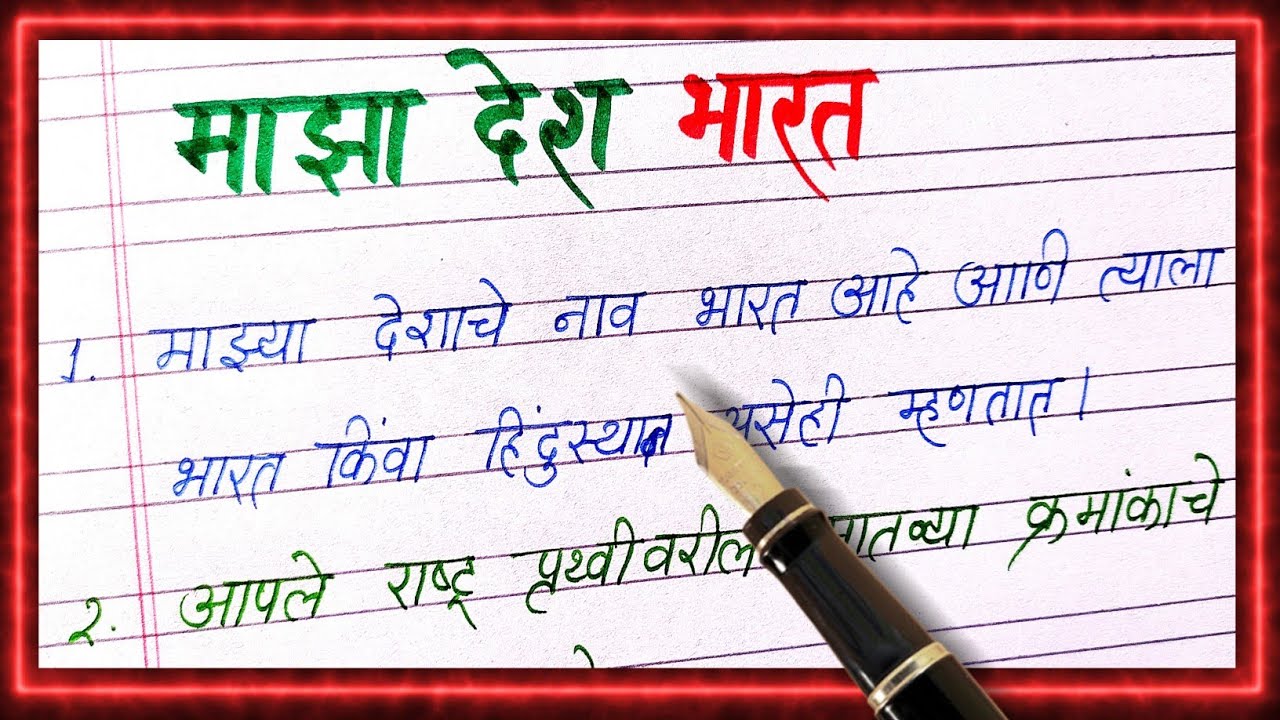 माझा देश भारत
1. माझ्या देशाचे नाव भारत आहे आणि त्याला
भारत किंवा हिंदुस्थान असेही म्हणतात।
२. आपले राष्ट्र पृथ्वीवरील सातव्या क्रमांकाचे